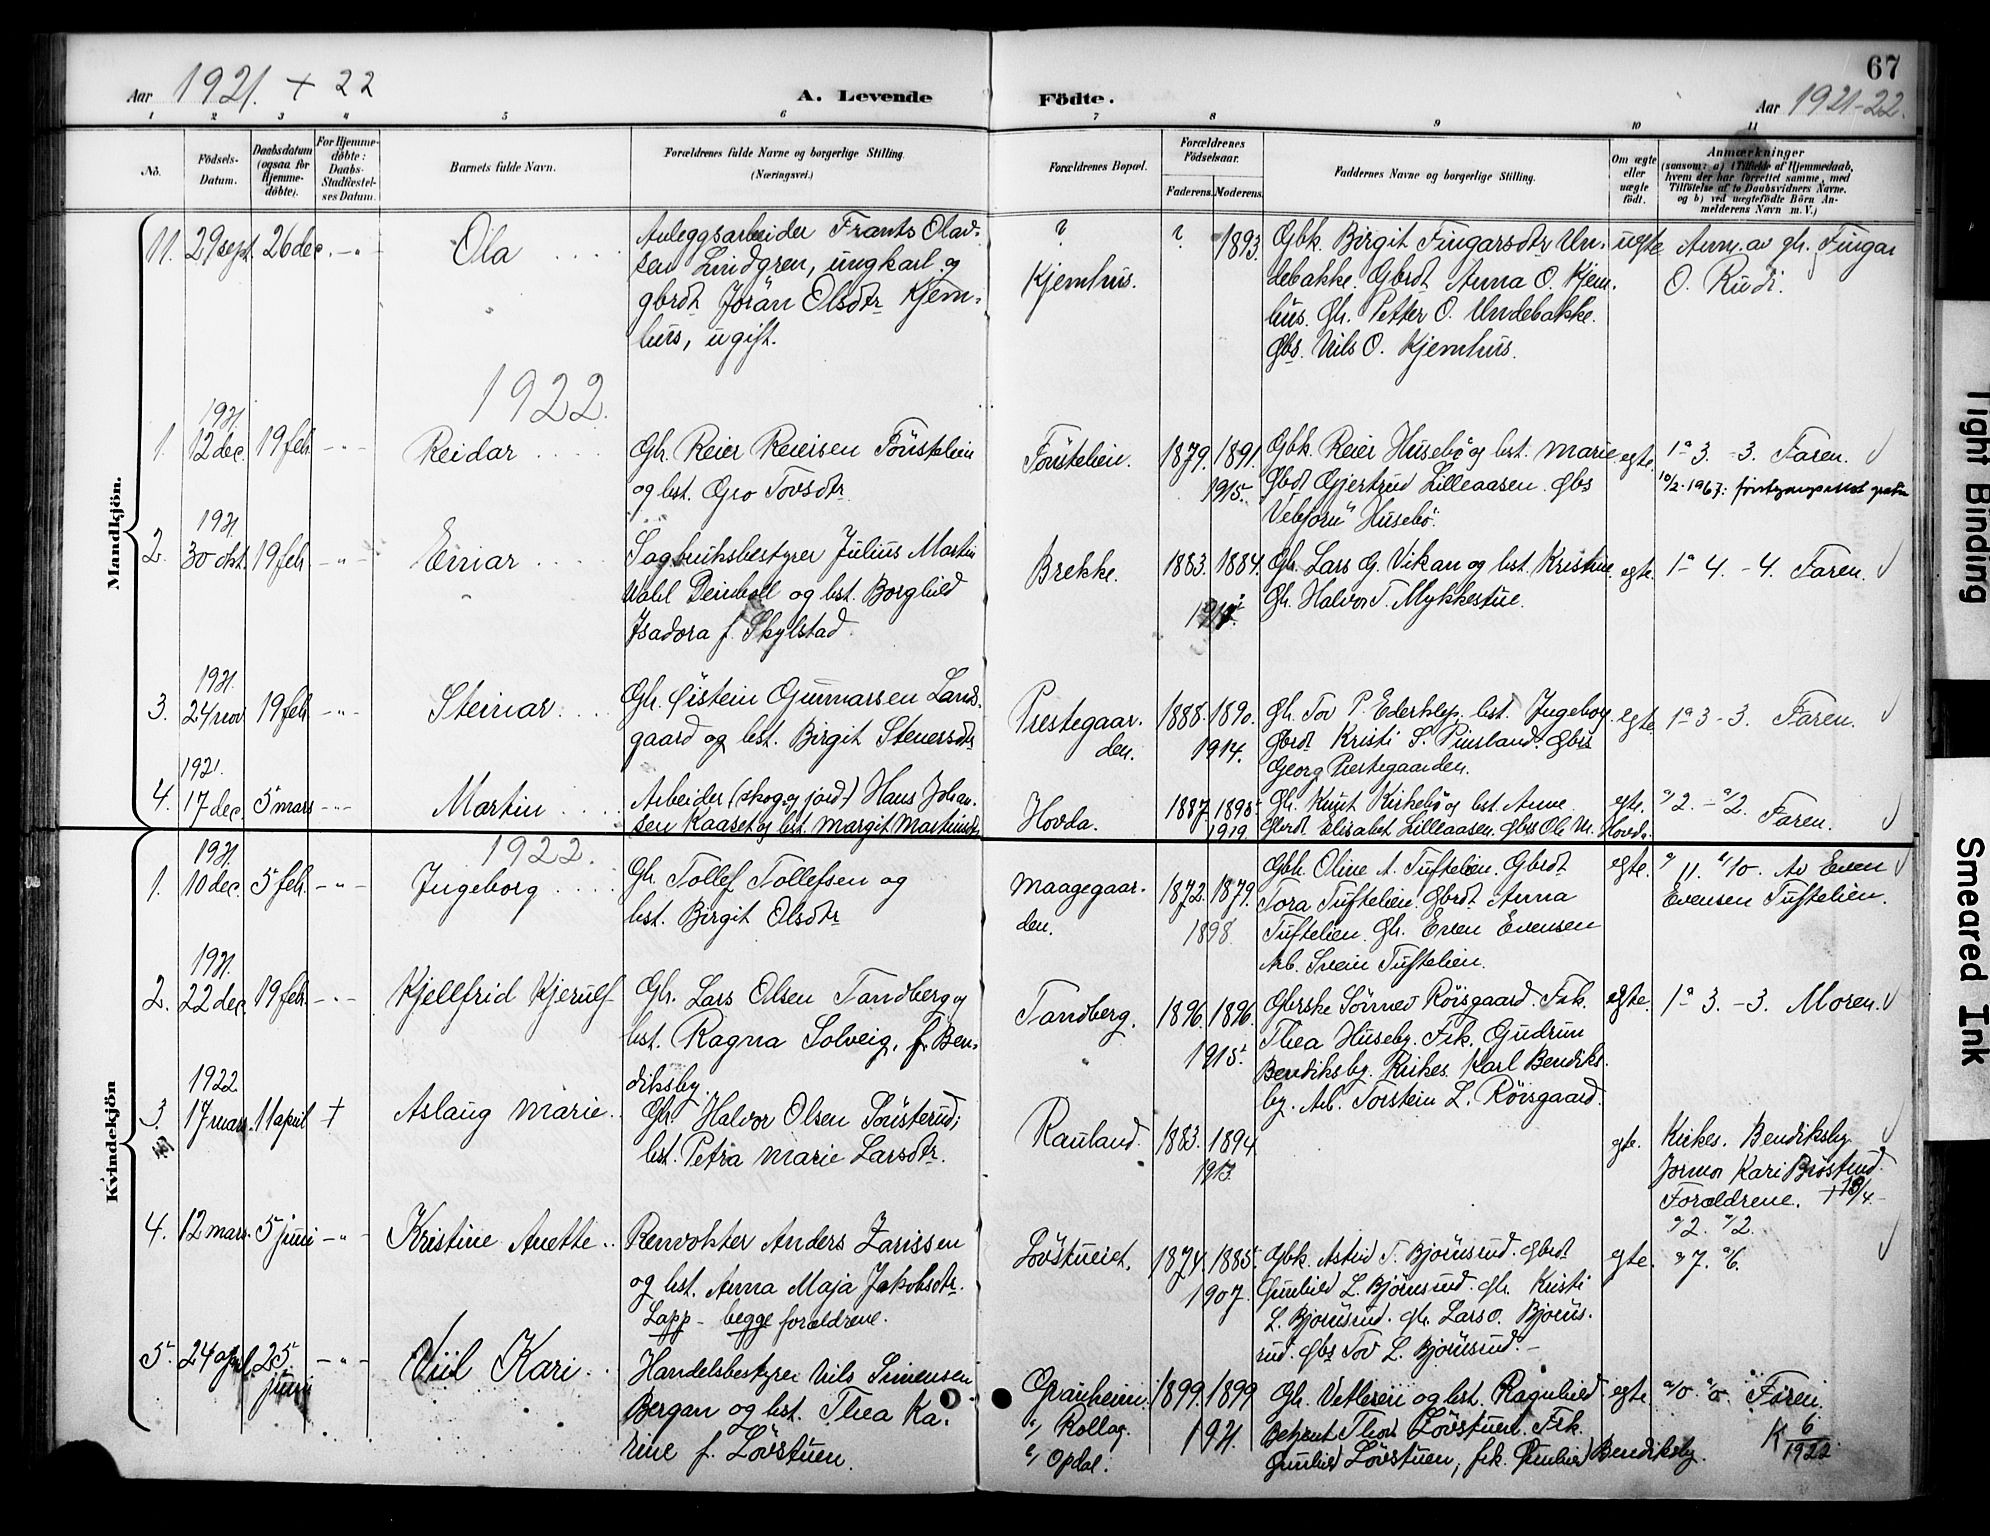 67
Aar 1921. + 22
A. Levende Födte.
Aar 1921-22.
1 2 3 4 5 6 7 8 9 10 11
No.
Födsels-Datum.
Daabsdatum (ogsaa for Hjemmedöbte).
For Hjemmedöbte: Daabs-Stadfæstelses Datum.
Barnets fulde Navn.
Forældrenes fulde Navne og borgerlige Stilling. (Næringsvei.)
Forældrenes Bopæl.
Forældrenes Födselsaar.
Faderens. Moderens.
Faddernes Navne og borgerlige Stilling.
Om ægte eller uægte födt.
Anmærkninger
(saasom: a) i Tilfælde af Hjemmedaab, hvem der har forrettet samme, med Tilföielse af to Daabsvidners Navne. og b) ved uægtefödte Börn Anmelderens Navn m. V.)
Mandkjön.
11. 29 sept. 26 dec. -"- Ola
Anleggsarbeider Frants Olav-
sen Lindgren, ungkarl og
gbrdt Jorän Olsdtr Kjem-
hus, ugift.
?
Kjemhus.
? 1893.
Gbk. Birgit Fingarsdtr Un-
debakke. Gbrdt Anna O. Kjem-
hus. Gh. Petter O. Undebakke.
Gbs. Nils O. Kjemhus.
ugte
Anm. av gh. Fingar
O. Rudi.
1922.
1. 1921. 12 dec. 19 feb. -"- Reidar
Gh. Reier Reiersen Fönstelien
og hst. Gro Tovsdtr
Fönstelien. 1879. 1891.
1915.
Gbk. Reier Husebö og hst. Marie
Gbdt Gjertrud Lilleaasen. Gbs
Vebjorn Husebö.
egte. 1a 3. -3. Faren. √
10/2-1967:
2. 1921. 30 okt. 19 feb. -"- Einar
Sagbruksbestyrer Julius Martin
Wahl Deinboll og hst. Borghild
Isadora f. Skylstad.
Brekke. 1883. 1884.
Gh. Lars G. Vikan og hst. Kristine
Gh. Halvor T. Mykkestue.
egte. 1a 4. -4. Faren. √
3. 1921. 24 nov. 19 feb. -"- Steinar
Gh. Östein Gunnarsen Lands-
gaard og hst. Birgit Stenersdtr
Prestegaar-
den.
1888. 1890.
1914.
Gh. Tov P. Ederklep. hst. Ingeborg.
Gbrdt Kristi S. Gbs
Georg Prestegaarden.
egte 1a 3 - 3. Faren. √
4. 1921. 17 dec. 5 mars -"- Martin
Arbeider (skog og jord) Hans Johan-
sen Kaaset og hst. Margit Martinsdtr
Hovda. 1887. 1895.
1919
Gh. Knut Kirkebö og hst. Anne.
Gbrdt Elisabet Lilleaasen. Gbs Ole N. Hovda.
egte. Faren. √
Kvindekjön
1922.
1. 1921. 10 dec. 5 feb. -"- Ingeborg
Gh. Tollef Tollefsen og
hst. Birgit Olsdtr
Maagegaar-
den.
1872. 1879.
1898.
Gbk. Oline A. Tuftelien. Gbrdt
Tora Tuftelien. Gbrdt Anna
Tuftelien. Gh. Even Evensen
Arb. Svein Tuftelien.
egte. 11. 10. Av Even √
Evensen Tuftelien.
2. 1921. 22 dec. 19 feb. -"- Kjellfrid Kjerulf
Gh. Lars Olsen Tandberg og
hst. Ragna Solveig, f. Ben-
diksby.
Tandberg. 1896. 1896.
1915.
Gbrske Sönnev Röisgaard. Frk.
Thea Huseby. Frk. Gudrun
Bendiksby. Kirkes. Karl Bendiks-
by. Arb. Torstein L. Röisgaard.
egte. 1a 3. -3. Moren. √
3. 1922 17 mars. 11 april + Aslaug Marie
Gh. Halvor Olsen Sönsterud;
hst. Petra Marie Larsdtr.
Rauland. 1883. 1894.
1913.
egte. Kirkes. Bendiksby √
Jormor Kari Bröstrud.
Foraldrene. + 18/4
4. 12 mars. 5 juni -"- Kristine Anette
Renvokter Anders Larissen
og hst. Anna Maja Jakobsdtr.
Lapp - begge foraldrene.
Lövstueiet. 1874. 1885.
1907.
Gbk. Astrid T. Björnsrud. Gbrdt
Gunhild L. Björnsrud. Gh. Kristi
L. Björnsrud. Gh. Lars O. Björns-
rud. Gbs Tov L. Björnsrud.
egte. √
5. 24 april. 25. juni -"- Niil Kari
Handelsbestyrer Nils Simensen
Bergan og hst. Thea Ka-
rine f. Lövstuen.
Granheim.
Rollag.
Opdal.
1899. 1899
1921.
Gh. Vetleren og hst. Ragnhild
Betjent Thor Lövstuen. Frk.
Gunhild Lövstuen, frk. Gunhild Bendiksby.
egte. Faren.
K 6/1922
Tight Binding
Smeared Ink